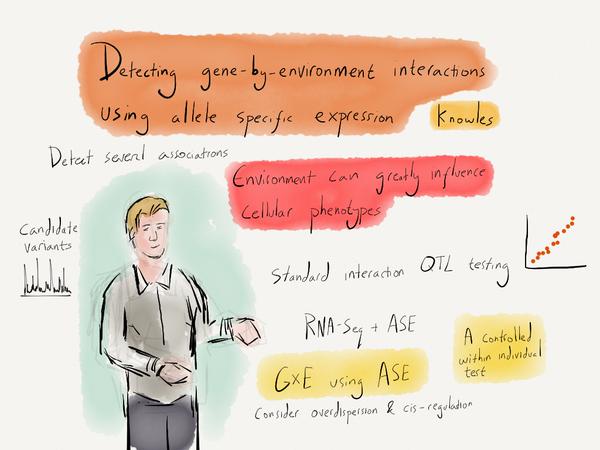 Detecting gene-by-environment interactions
using allele specific expression
Knowles
Detect several associations
Environment can greatly influence
cellular phenotypes
Candidate
variants
Standard interaction QTL testing
RNA-Seq + ASE
GxE using ASE
A controlled
within individual
test
Consider overdispersion & cis-regulation